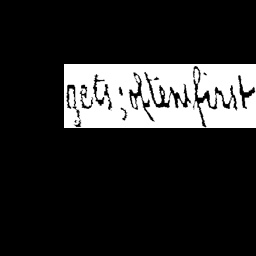 gets; often first